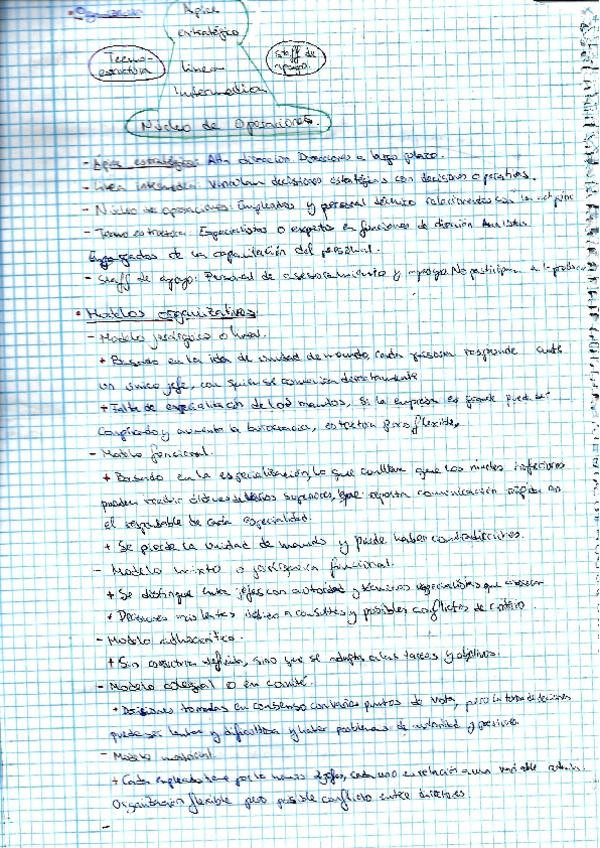 • Organización
Apice
estratégico
Tecno-
estructura
Línea
Intermedia
Staff de
apoyo.
Núcleo de Operaciones.
- Apice estratégico: Alta dirección. Decisiones a largo plazo.
- Línea intermedia: Vinculan decisiones estratégicas con decisiones operativas.
- Núcleo de operaciones: Empleados y personal técnico relacionados con la
- Tecno estructura: Especialistas o expertos en funciones de dirección
Encargados de la capacitación del personal.
- Staff de apoyo: Personal de asesoramiento y apoyo. No participan a la
• Modelos organizativos
- Modelo jerárquico o lineal.
+ Basado en la idea de unidad de mando, cada persona responde ante
un único jefe, con quien se comunica directamente
+ Falta de especialización de los mandos, si la empresa es grande puede ser
complicado y aumenta la burocracia, estructura poco flexible,
- Modelo funcional.
+ Basado en la especialización, lo que conlleva que los niveles inferiores
puedan recibir órdenes de varios superiores, comunicación rápida en
el responsable de cada especialidad.
+ Se pierde la unidad de mando y puede haber contradicciones.
- Modelo mixto o jerárquico funcional.
+ Se distingue entre jefes con autoridad y técnicos especialistas que asesoran
+ Decisiones más lentas debido a consultas y posibles conflictos de
- Modelo adhocrático.
+ Sin estructura definida, sino que se adapta a las tareas y objetivos.
- Modelo colegial o en comité.
+ Decisiones tomadas en consenso con varios puntos de vista, pero la toma de decisiones
puede ser lenta y dificultosa y haber problemas de autoridad y
- Modelo matricial.
+ Cada empleado tiene por lo menos 2 jefes, cada uno en relación a una variable
Organización flexible pero posible conflicto entre directores
-